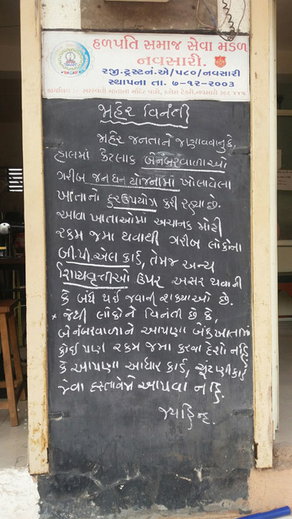 હળપતિ સમાજ સેવા મંડળ
નવસારી.
રજી.ટ્રસ્ટનં.એ/૫૮૦/નવસારી
સ્થાપના તા. ૭-૧૨-૨૦૦૩
જાહેર વિનંતી
જાહેર જનતાને જણાવવાનુ કે,
હાલમાં કેટલાક બેનંબરવાળાઓ
ગરીબ જનધન યોજનામાં ખોલાવેલા
ખાતાનો દુરઉપયોગ કરી રહ્યા છે.
આવા ખાતાઓમા અચાનક મોટી
રકમ જમા થવાથી ગરીબ લોકોના
બી.પી.એલ કાર્ડ, તેમજ અન્ય
શિષ્યવૃત્તીઓ ઉપર અસર થવાની
કે બંધ થઈ જવાની શક્યાઓ છે.
* જેથી લોકોને વિનંતી છે કે,
બેનંબરવાળાને આપણા બેંકખાતામાં
કોઈ પણ રકમ જમા કરવા દેશો નહિ
કે આપણા આધાર કાર્ડ, ચુંટણીકાર્ડ
જેવા દસ્તાવેજો આપવા નહિ.
જયહિન્દ.